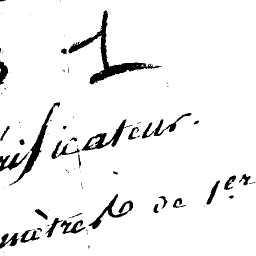 1
rificateur.
mètres de 1er